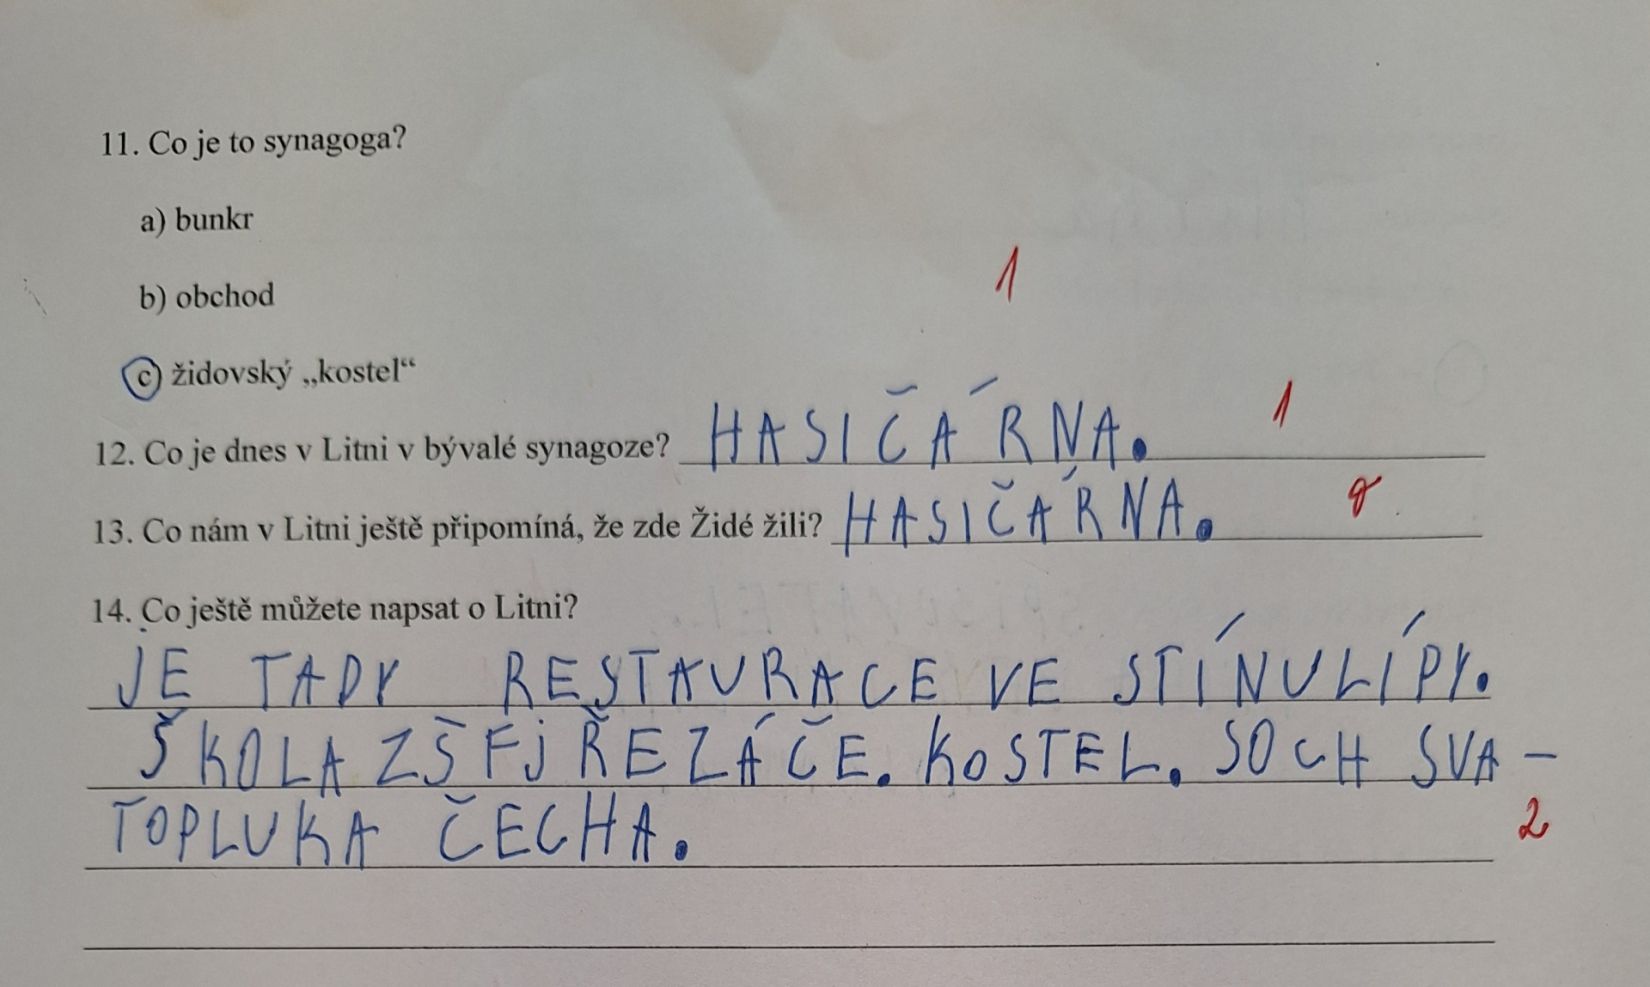 11. Co je to synagoga?
a) bunkr
b) obchod
1
c) židovský „kostel“
12. Co je dnes v Litni v bývalé synagoze? HASIČÁRNA. 1
13. Co nám v Litni ještě připomíná, že zde Židé žili? HASIČÁRNA. 0
14. Co ještě můžete napsat o Litni?
JE TADY RESTAURACE VE STÍNULÍPY.
ŠKOLA ZŠ FJ ŘEZÁČE. KOSTEL. SOCH SVA-
TOPLUKA ČECHA. 2